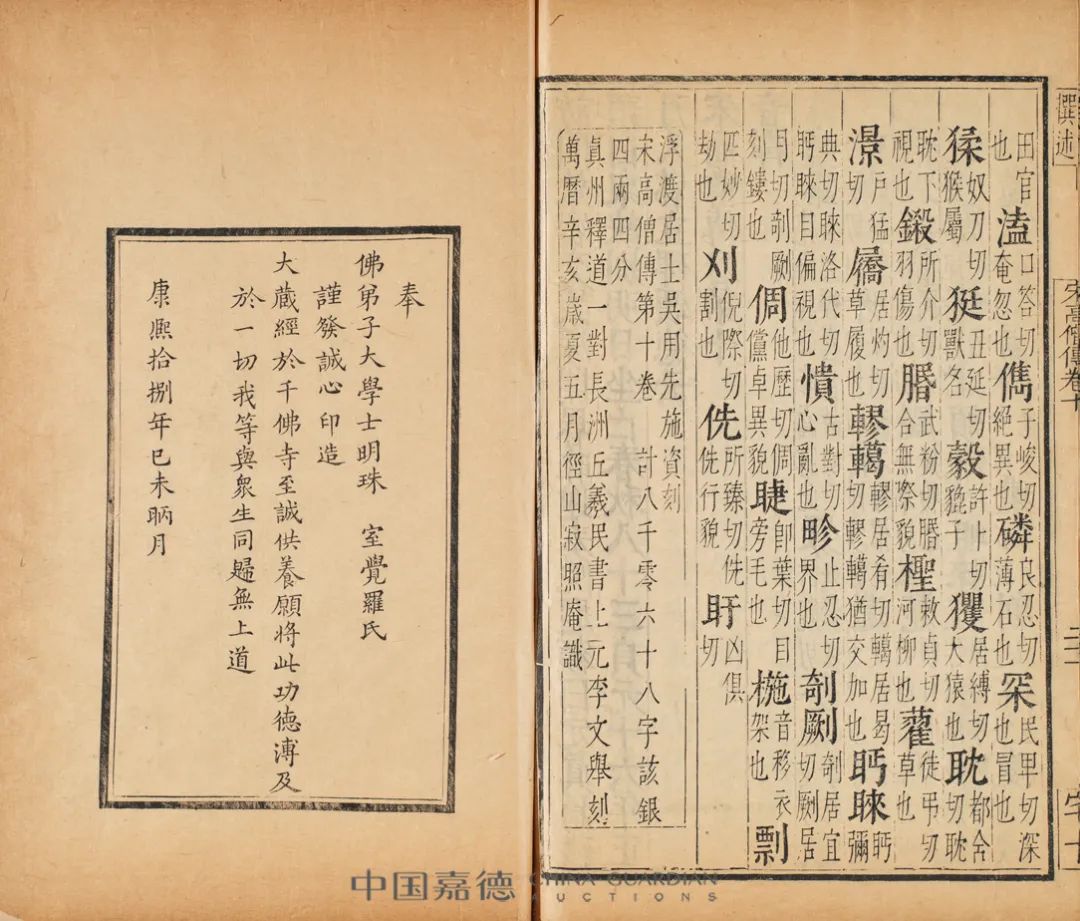 撰述
宋高僧傳卷十
田官也溘口答切奄忽也儁子峻切絕異也磷良忍切薄石也罙民甲切深也冒也
猱奴刀切猴屬狿丑延切獸名豰許卜切子玃居縛切大猿也耽都含切耽
耽下視也鎩所介切羽傷也脗武粉切脗合無際貌檉敕貞切河柳也藋徒弔切草也
澋戶猛切屩居灼切草履也轇轕轇居肴切轕居曷切轇轕猶交加也眄睞眄彌
典切睞洛代切眄睞目偏視也憒古對切心亂也畛止忍切界也剞劂剞居宜切劂居
月切剞劂刻鏤也倜他歷切倜儻卓異貌睫即葉切目旁毛也椸音移衣架也剽
匹妙切劫也刈倪際切割也侁所臻切侁侁行貌盱凶俱切
浮渡居士吳用先施資刻
宋高僧傳第十卷 計八千零六十八字該銀
四兩四分
真州釋道一對長洲丘義民書上元李文舉刻
萬曆辛亥歲夏五月徑山寂照庵識
奉
佛弟子大學士明珠 室覺羅氏
謹發誠心印造
大藏經於千佛寺至誠供養願將此功德溥及
於一切我等與眾生同歸無上道
康熙拾捌年巳未昞月
中国嘉德 CHINA GUARDIAN
AUCTIONS